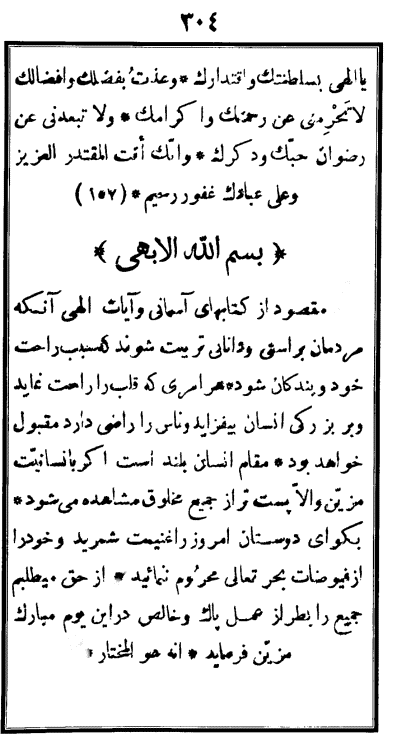 ٣٠٤
يا الهى بسلطنتك واقتدارك * وعذتُ بفضلك وافضالك
لا تَحْرِمنى عن رحمتك واكرامك * ولا تبعدنى عن
رضوان حبّك وذكرك * وانّك أنت المقتدر العزيز
وعلى عبادك غفور رحيم * (١٥٧)
﴿ بسم اللّه الابهى ﴾
مقصود از كتابهاى آسمانى وآيات الهى آنكه
مردمان براستى ودانائى تربيت شوند كه سبب راحت
خود وبندكان شود * هر امرى كه قلب را راحت نمايد
وبر بزركى انسان بيفزايد وناس را راضى دارد مقبول
خواهد بود * مقام انسان بلند است اكر بانسانيّت
مزيّن والاّ پست تر از جميع مخلوق مشاهده مى شود *
بكو اى دوستان امروز را غنيمت شمريد وخود را
از فيوضات بحر تعالى محروم ننمائيد * از حق ميطلبم
جميع را بطراز عمل پاك وخالص در اين يوم مبارك
مزيّن فرمايد * انه هو المختار *